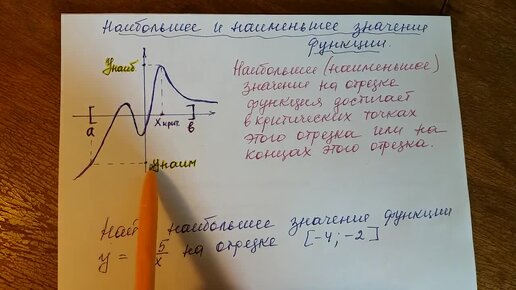 Наибольшее и наименьшее значение
функции.
Yнаиб
Наибольшее (наименьшее)
значение на отрезке
функция достигает
в критических точках
этого отрезка или на
концах этого отрезка.
[ ]
a Xкрит. b
Yнаим
наибольшее значение функции
y = 5/x на отрезке [-4; -2]